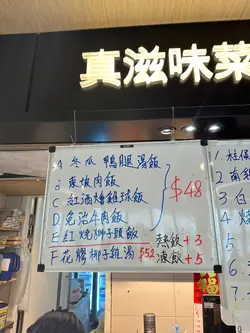 真滋味菜
A 冬瓜鴨腿湯飯
B 東坡肉飯
C 紅酒燴雞球飯
D 免治牛肉飯
E 紅燒獅子頭飯
F 花膠椰子雞湯 $52
$48
蒸飯 +3
凍飲 +5
1
2 南
3 白
4 燒
5
6
7
福